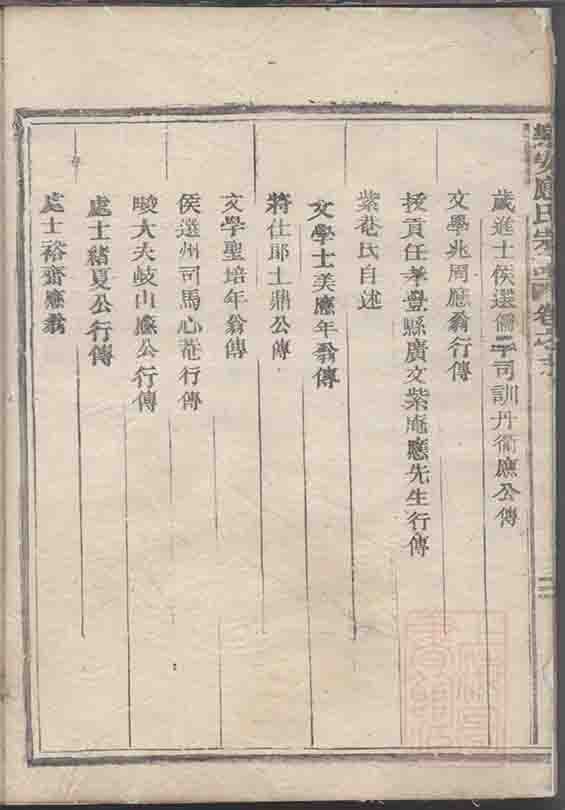 樂安應氏宗譜 卷之
二
歲進士侯選儒學司訓丹衢應公傳
文學兆周應翁行傳
援貢任孝豐縣廣文紫庵應先生行傳
紫菴氏自述
文學士美應年翁傳
將仕郎士鼎公傳
文學聖培年翁傳
侯選州司馬心菴行傳
畯大夫岐山應公行傳
處士緒夏公行傳
處士裕齋應翁